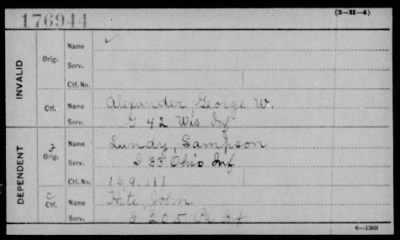 176944
(3-H-4)
INVALID
Orig.
Name
Serv.
Ctf. No.
Ctf.
Name Alexander, George W.
Serv. G 42 Wis Inf
DEPENDENT
Orig.
Name Lundy, Sampson
Serv. D 33 Ohio Inf
Ctf. No. 169.111
C
Ctf.
Name Hite, John
Serv. G 205 Pa Inf